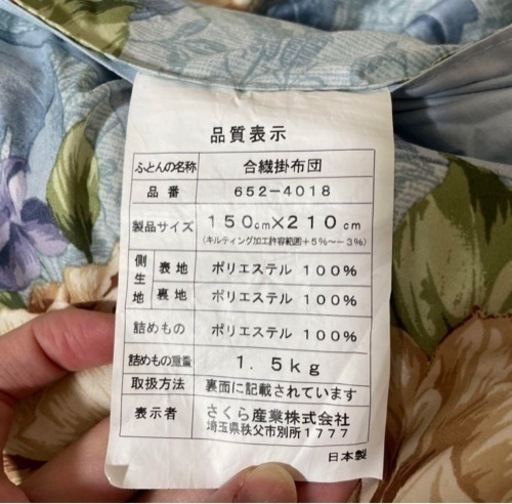 品質表示
ふとんの名称 合繊掛布団
品番 652-4018
製品サイズ 150cm×210cm
(キルティング加工許容範囲+5%~-3%)
側生地 表地 ポリエステル 100%
裏地 ポリエステル 100%
詰めもの ポリエステル 100%
詰めもの重量 1.5kg
取扱方法 裏面に記載されています
表示者 さくら産業株式会社
埼玉県秩父市別所1777
日本製